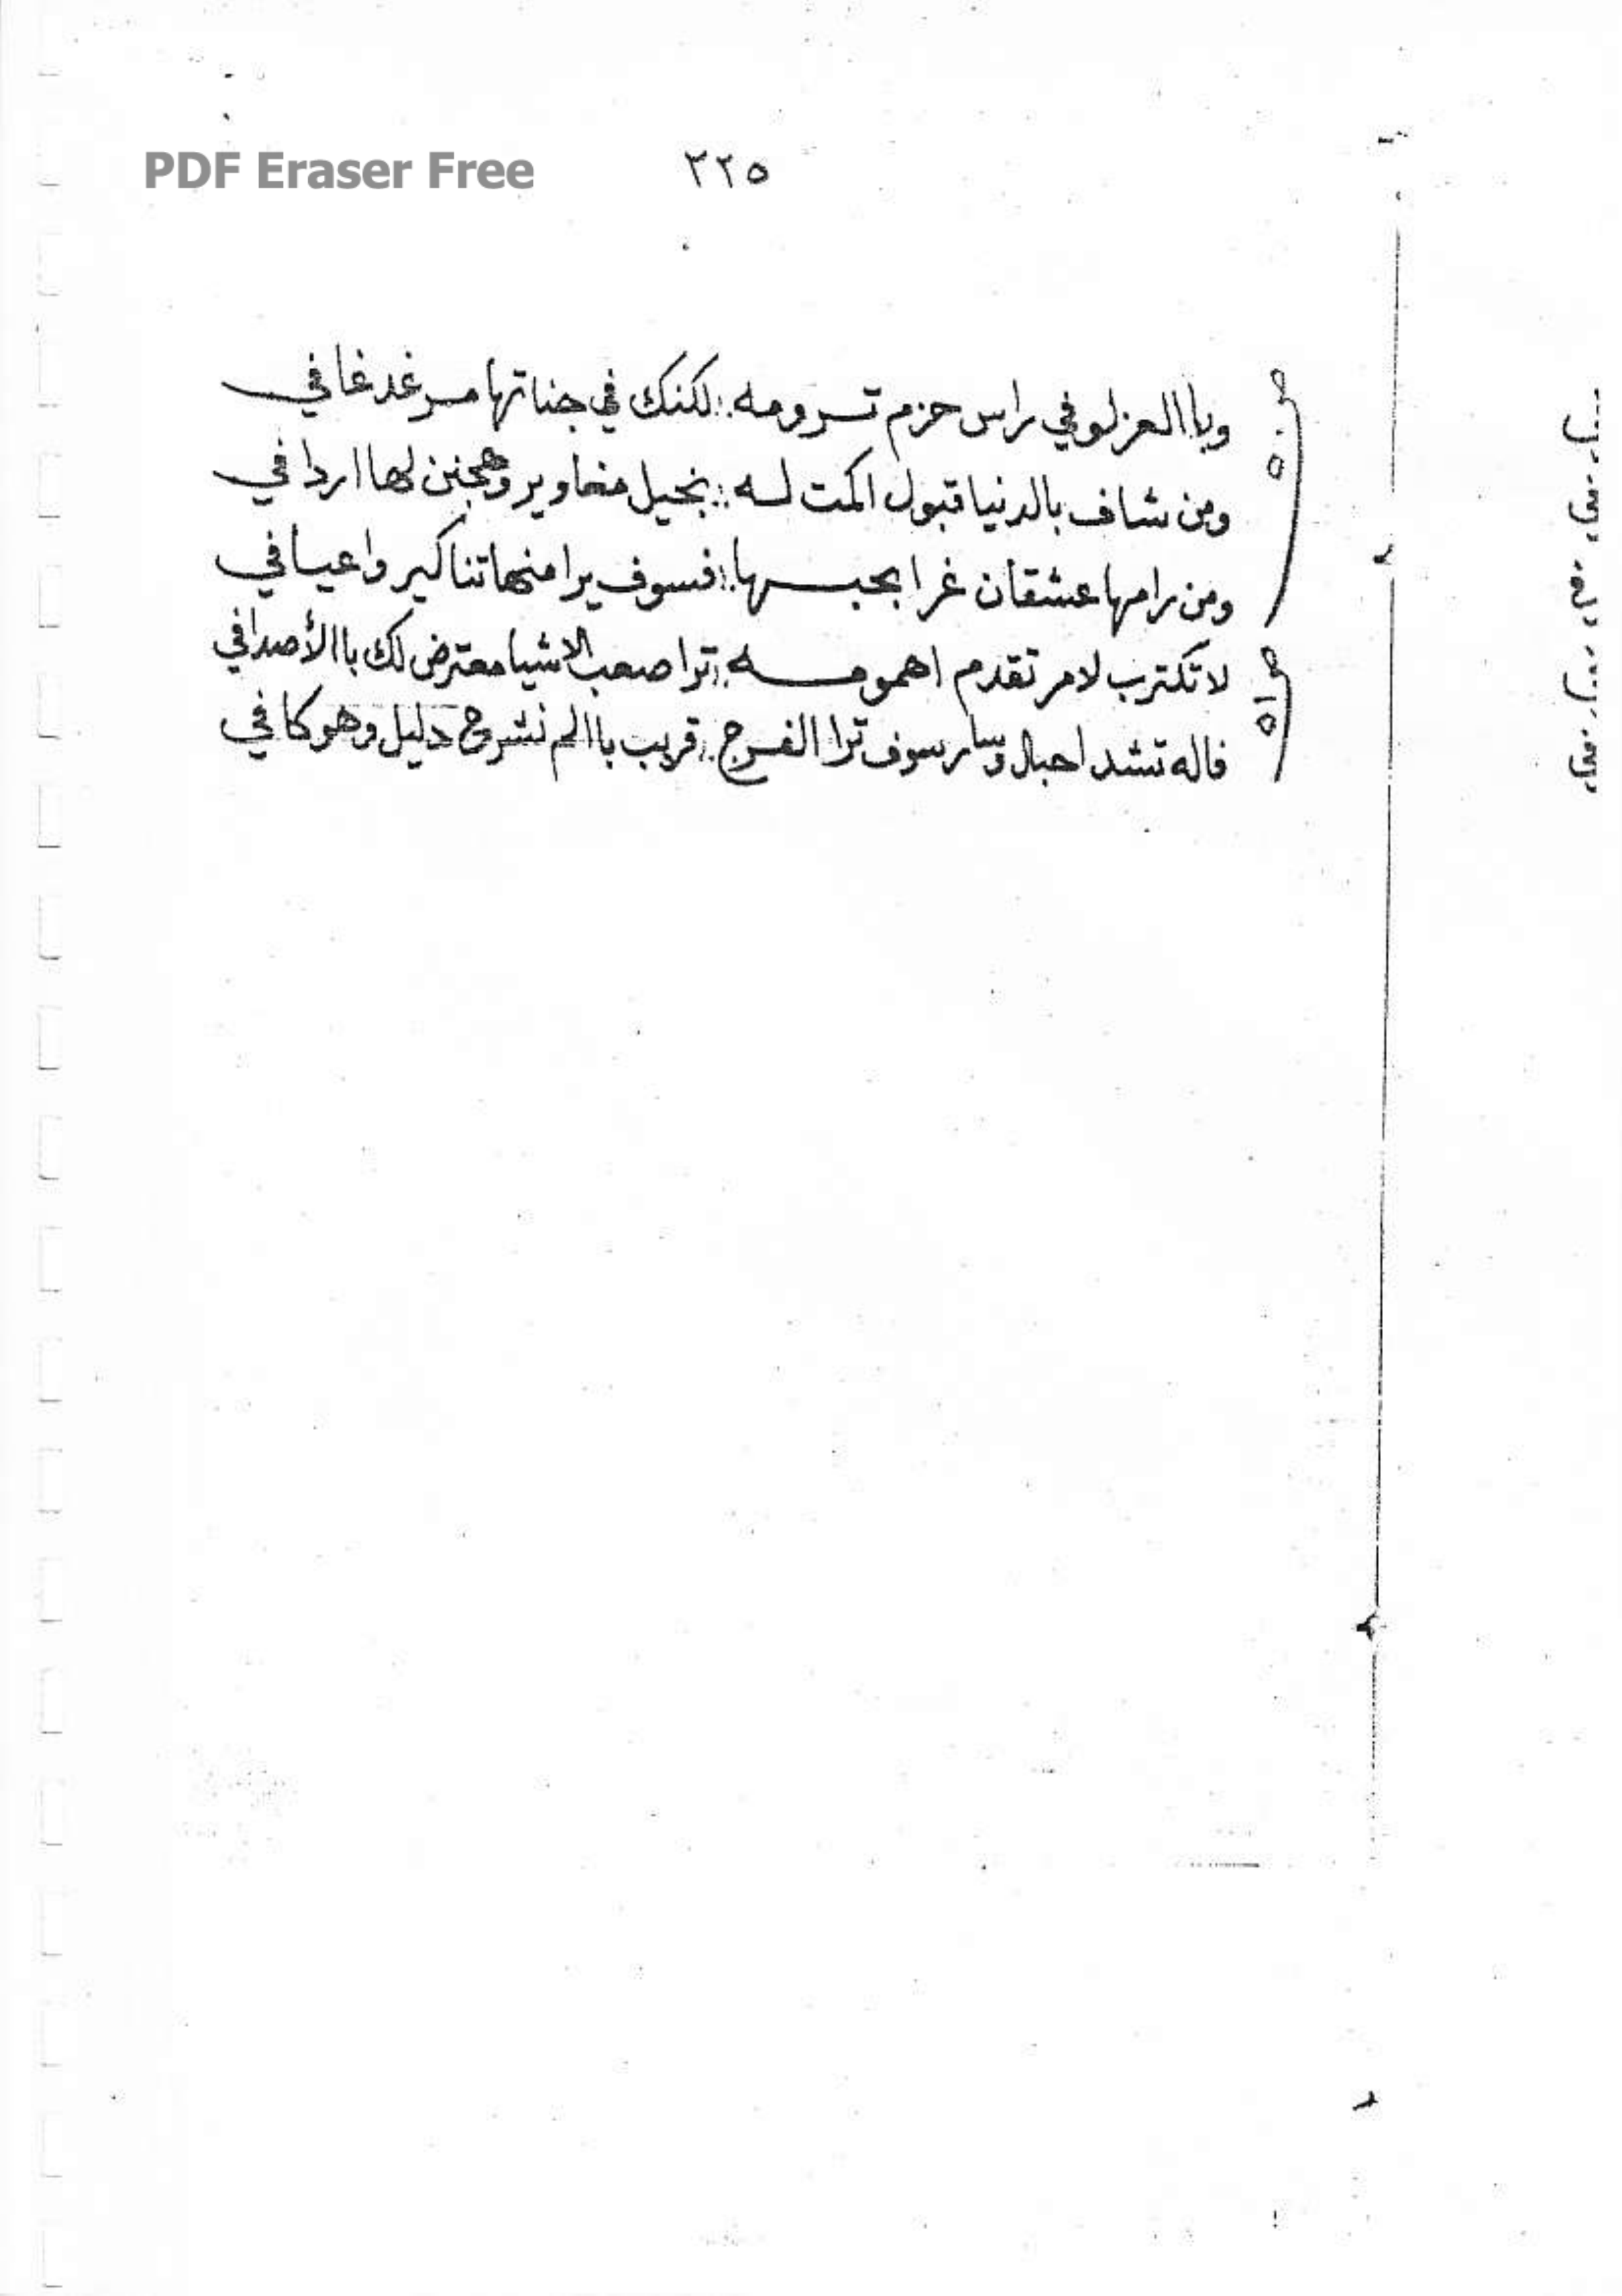 PDF Eraser Free
٢٢٥
وبا العز لو في راس حزم ترومه :: لكنك في جناتها مرغد غافي
ومن شاف بالدنيا قبول اكمت له :: بخيل مغاوير وهجنن لها اردافي
ومن رامها عشقان غرا بحبها :: فسوف يرا منها تناكير واعيافي
لا تكترب لامر تقدم اهمومه :: ترا صعب الاشيا معترض لك باالأصدافي
فاله تشد احبال وسار سوف ترا الفرج :: قريب باالم نشرح دليل وهو كافي